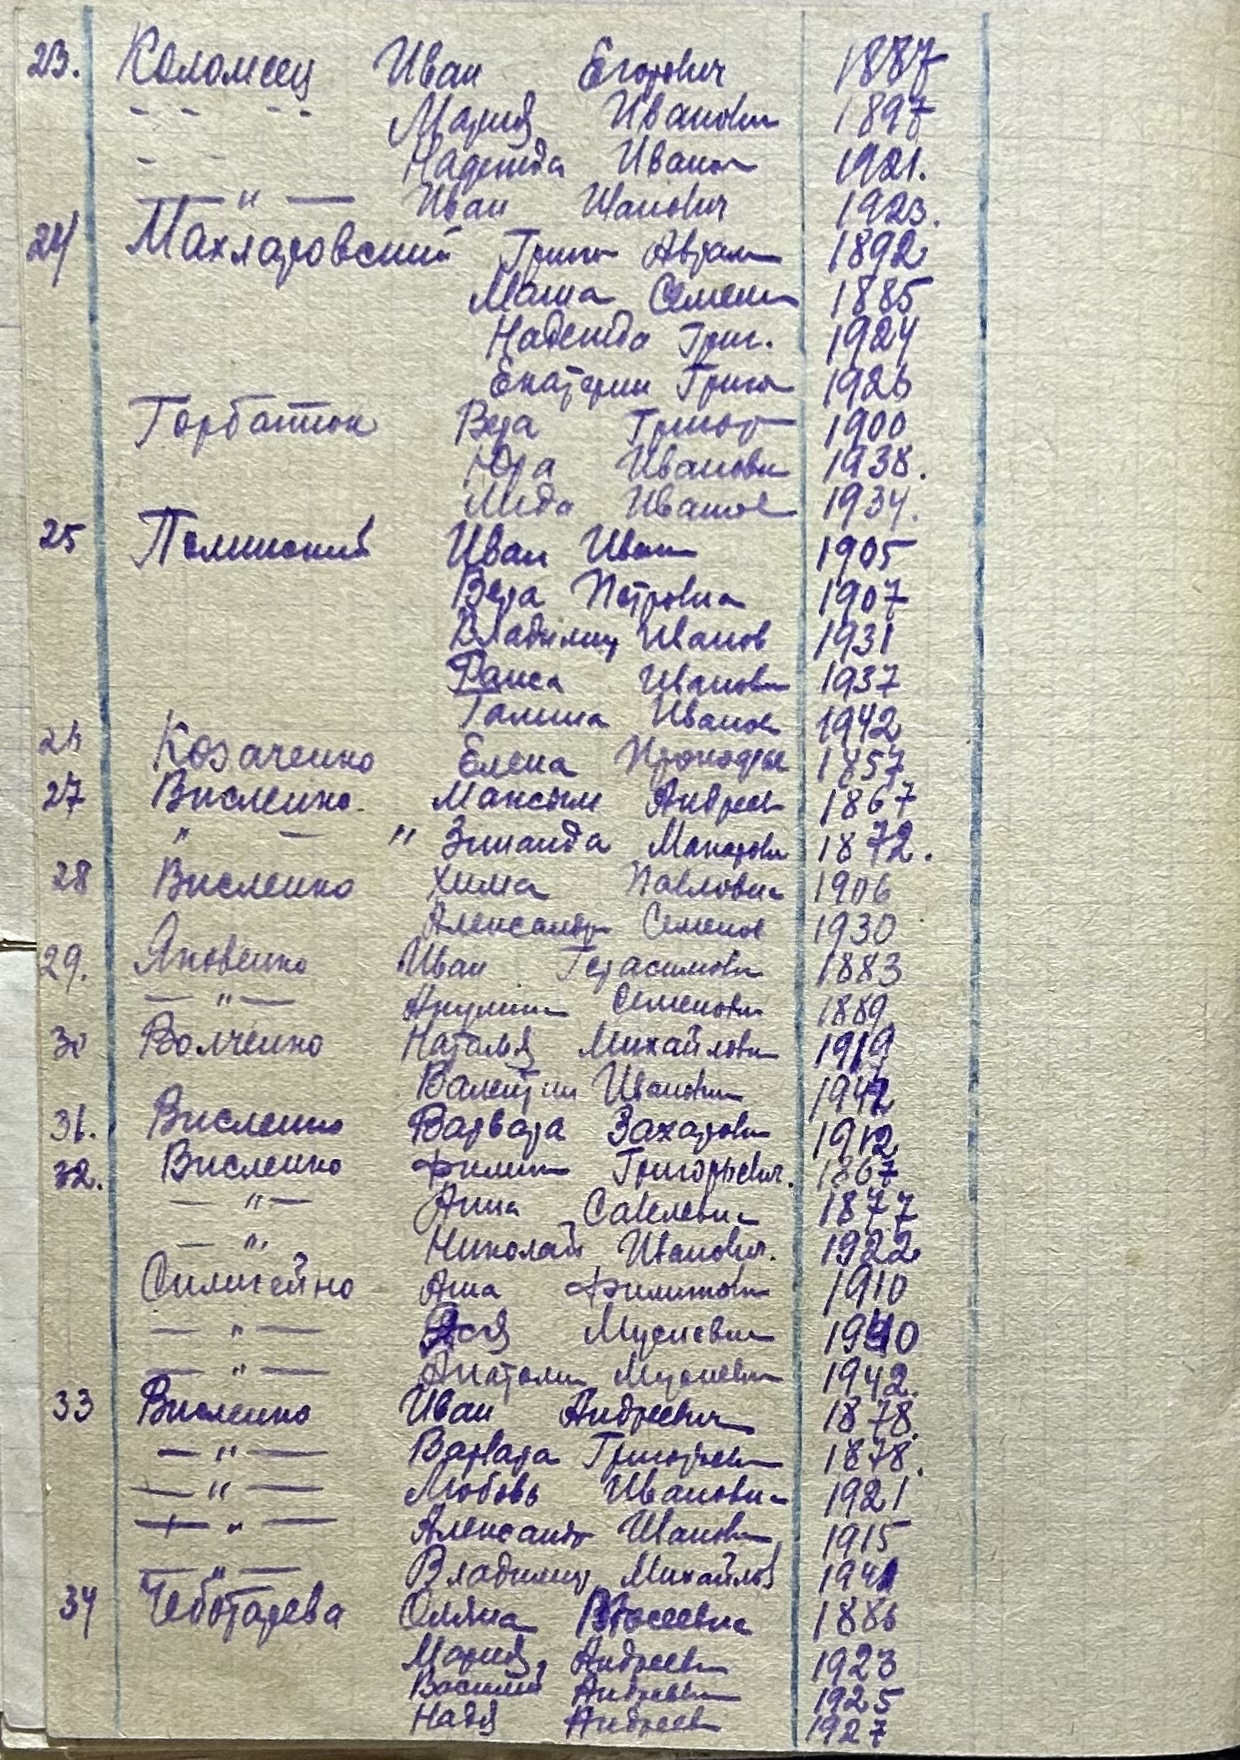 23. Коломеец Иван Егорович 1887
- - - - Мария Ивановн 1897
- - Надежда Иванов 1921.
— " — Иван Иванович 1923.
24 Махларовский Григ Аврам 1892
Маша Семен 1885
Надежда Григ. 1924
Екатерин Григ 1926
Горбатюк Вера Григор 1900
Юра Иванови 1938.
Лида Иванов 1934.
25 Полинский Иван Иван 1905
Вера Петровна 1907
Владимир Иванов 1931
Раиса Ивановн 1937
Галина Иванов 1942
26 Козаченко Елена Прокофье 1857
27 Висленко. Максым Андреев 1867
" — " Зинаида Макаровн 1872.
28 Висленко Хима Павловна 1906
Александр Семенов 1930
29. Яковенко Иван Герасимови 1883
— " — Акулина Семеновн 1889
30 Волченко Наталья Михайловн 1919
Валентин Иванович 1942
31. Висленко Варвара Захаровн 1912
32. Висленко Филип Григорьевич. 1867
— " — Анна Савелевна 1877
— " Николай Иванович. 1922
Силигейно Анна Филиповн 1910
— " — Ася Мусиевн 1940
— " — Анатоли Мусиеви 1942.
33 Висленко Иван Андреевич 1878.
— " — Варвара Григорьевн 1878.
— " — Любовь Ивановна 1921
— " — Александр Иванови 1915
— " — Владимир Михайлов 1941
34 Чеботарева Оляна Моосеевна 1886
Мария, Андреевн 1923
Василий Андреевич 1925
Надя Андреев 1927